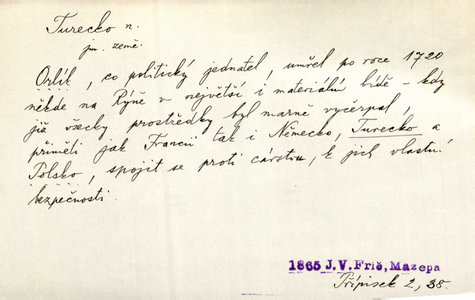 Turecko n.
jm. země.
Orlík, co politický jednatel, umřel po roce 1720
někde na Rýně v největší i materiální bídě – kdy
již všecky prostředky byl marně vyčerpal,
přiměti jak Francii tak i Německo, Turecko a
Polsko, spojit se proti cárstvu, k jich vlastní
bezpečnosti.
1865 J.V.Frič, Mazepa
Přípisek 2, 38.